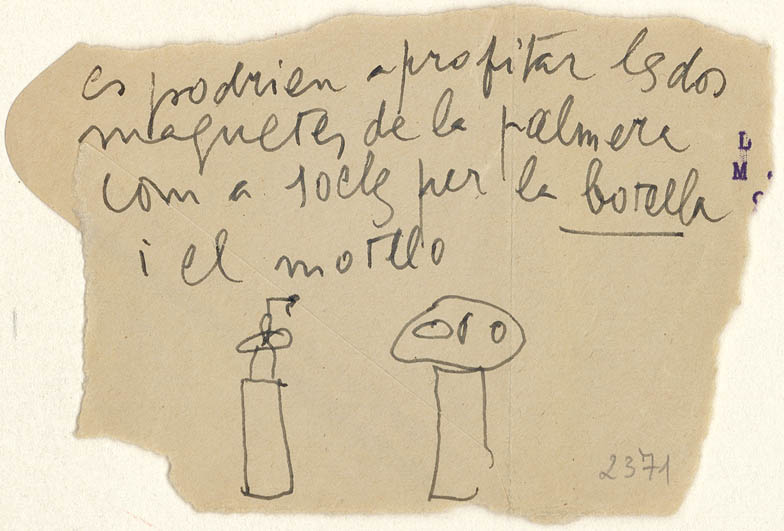 es podrien aprofitar les dos
maquetes de la palmera
com a socls per la botella
i el motllo
L
M
2371